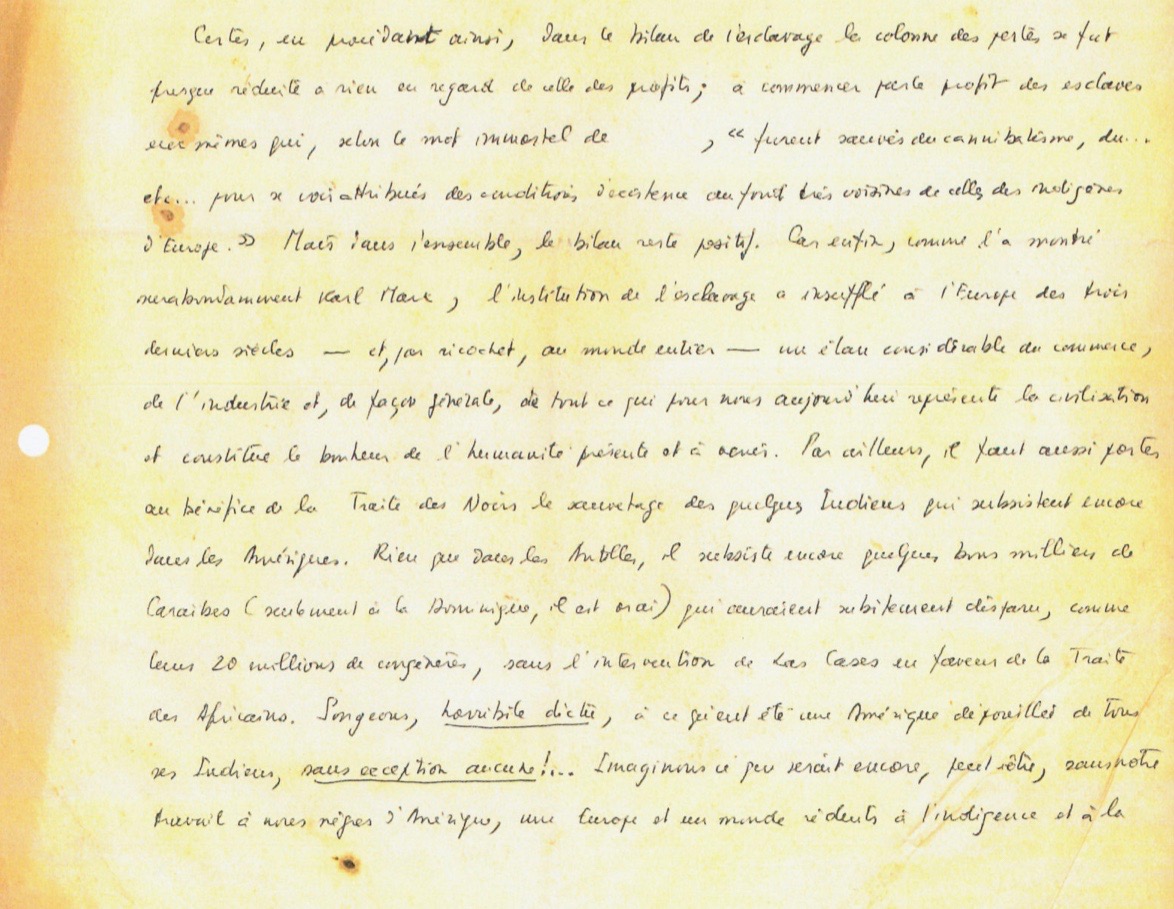 Certes, en procédant ainsi, dans le bilan de l'esclavage la colonne des pertes se fut
presque réduite a rien en regard de celle des profits; à commencer par le profit des esclaves
eux mêmes qui, selon le mot immortel de , " furent sauvés du cannibalisme, du...
etc... pour se voir attribués des conditions d'existence au fond très voisines de celles des indigènes
d'Europe." Mais dans l'ensemble, le bilan reste positif. Car enfin, comme l'a montré
surabondamment Karl Marx, l'institution de l'esclavage a insufflé à l'Europe des trois
derniers siècles — et, par ricochet, au monde entier — un élan considérable du commerce,
de l'industrie et, de façon générale, de tout ce qui pour nous aujourd'hui représente la civilisation
et constitue le bonheur de l'humanité présente et à venir. Par ailleurs, il faut aussi porter
au bénéfice de la Traite des Noirs le sauvetage des quelques Indiens qui subsistent encore
dans les Amériques. Rien que dans les Antilles, il subsiste encore quelques bons milliers de
Caraïbes (seulement à la Dominique, il est vrai) qui auraient subitement disparu, comme
leurs 20 millions de congénères, sans l'intervention de Las Cases en faveur de la Traite
des Africains. Songeons, horribile dictu, à ce qu'eut été une Amérique dépouillée de tous
ses Indiens, sans exception aucune!... Imaginons ce que serait encore, peut-être, sans notre
travail à nous nègres d'Amérique, une Europe et un monde réduits à l'indigence et à la